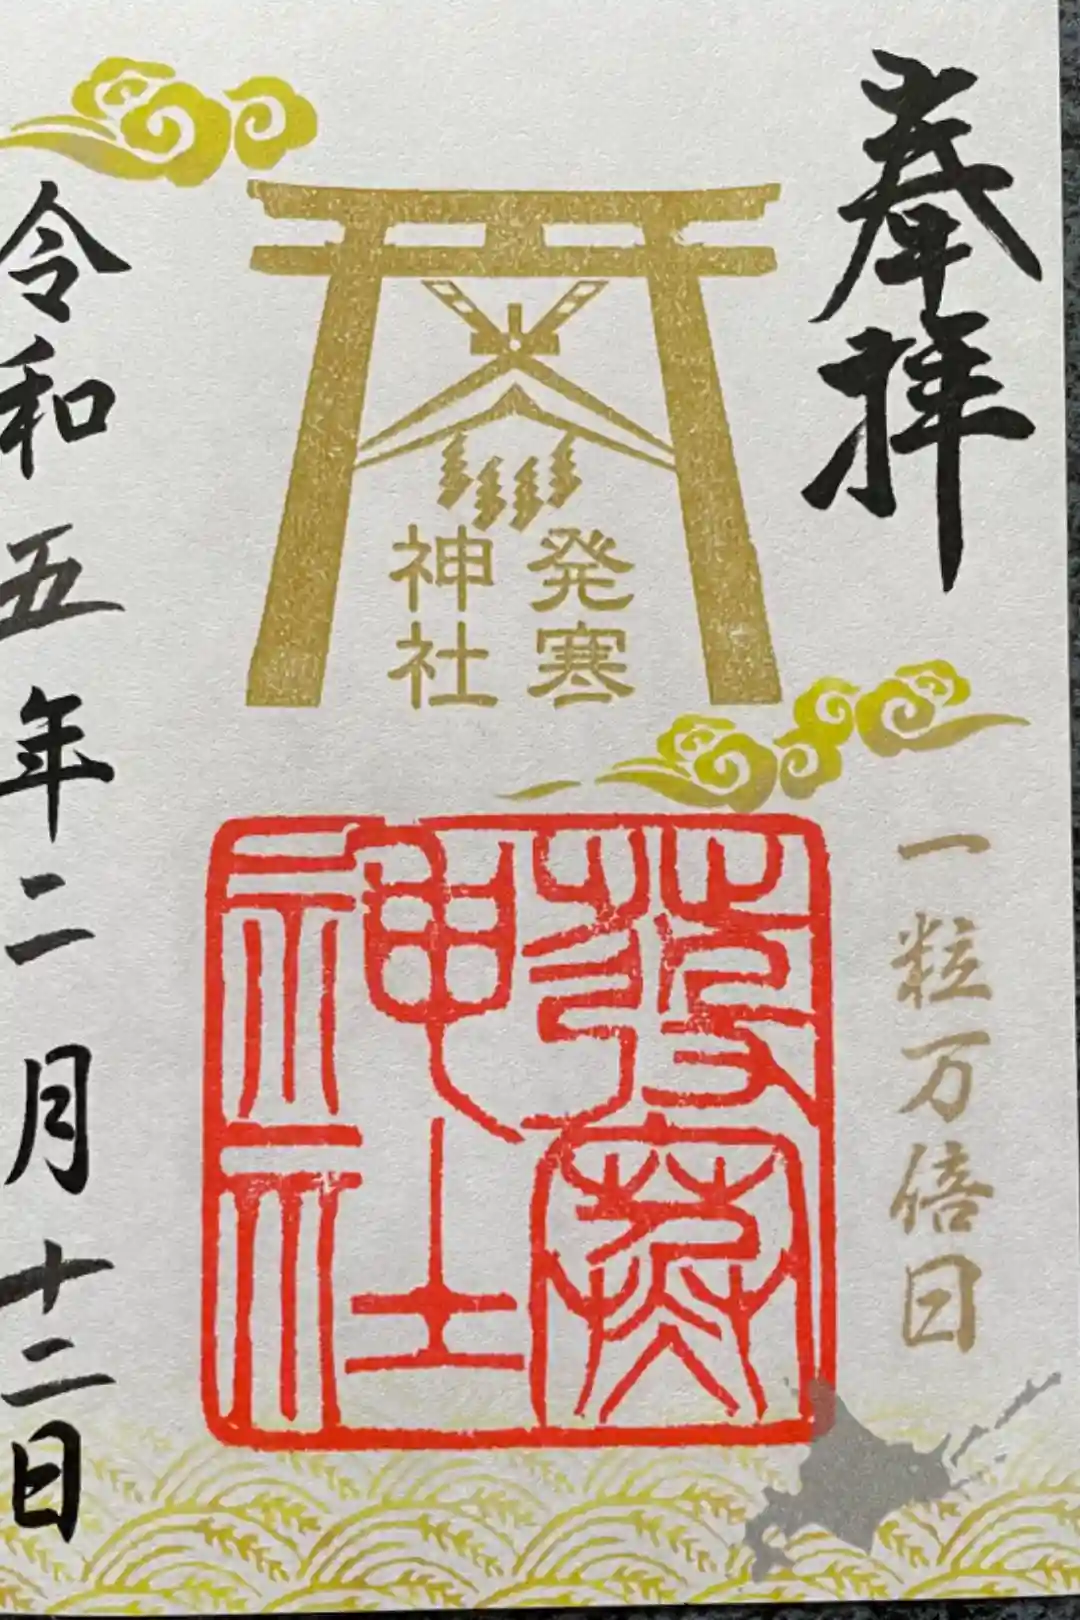 奉拝
一粒万倍日
発寒
神社
發寒
神社
令和五年二月十二日